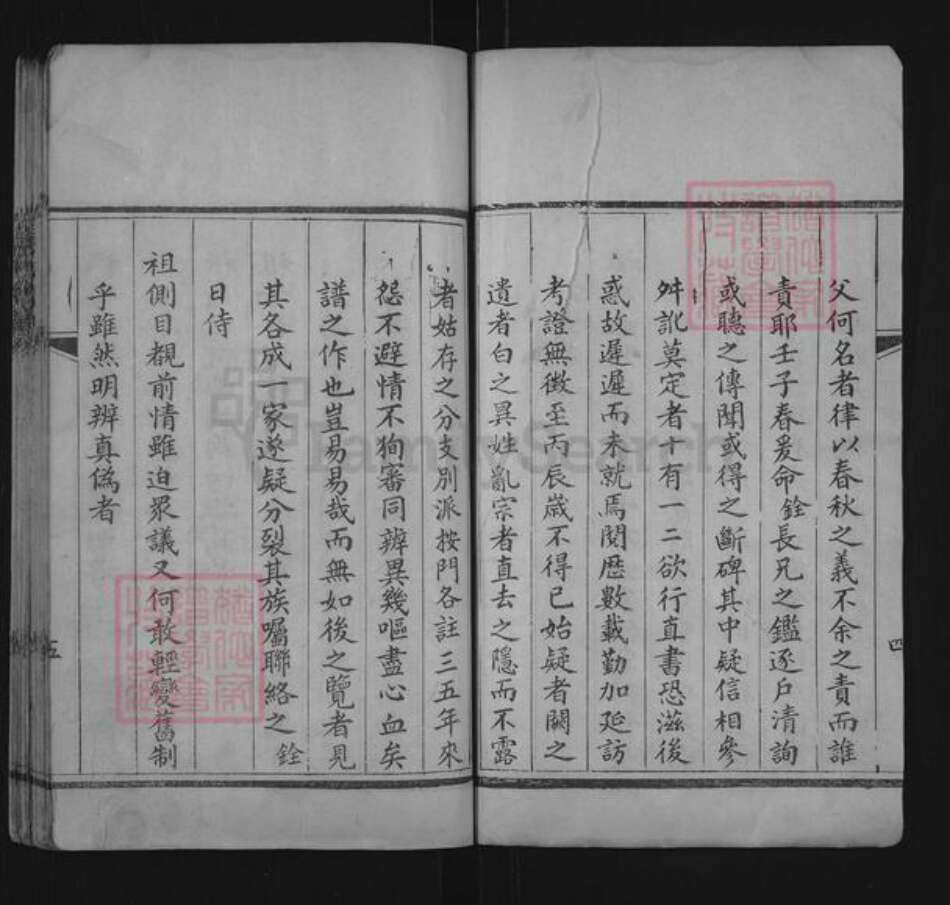 父何名者律以春秋之義不余之責而誰
責耶壬子春爰命銓長兄之鑑逐戶清詢
或聽之傳聞或得之斷碑其中疑信相參
舛訛莫定者十有一二欲行直書恐滋後
惑故遲遲而未就焉閱歷數載勤加延訪
考證無徵至丙辰歲不得已始疑者闕之
遺者白之異姓亂宗者直去之隱而不露
者姑存之分支別派按門各註三五年來
怨不避情不狥審同辨異幾嘔盡心血矣
譜之作也豈易易哉而無如後之覽者見
其各成一家遂疑分裂其族囑聯絡之銓
日侍
祖側目覩前情雖迫眾議又何敢輕變舊制
乎雖然明辨真僞者
四
五
FamilySearch